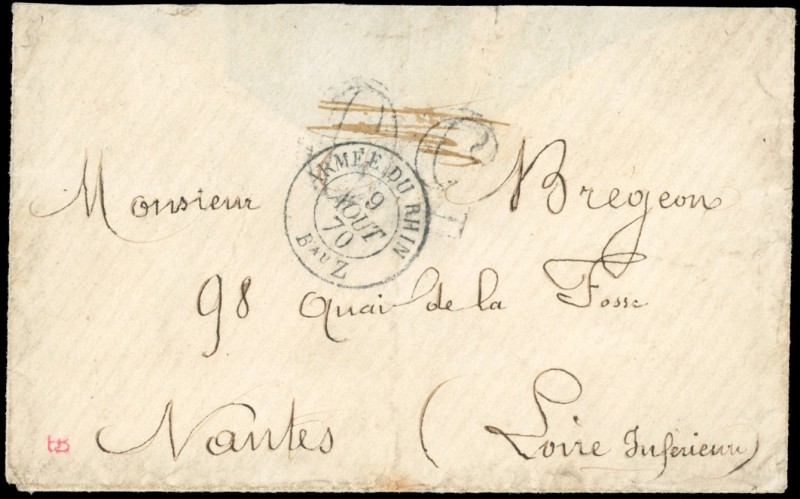 Monsieur Brégeon
98 quai de la Fosse
Nantes (Loire Inférieure)
ARMÉE DU RHIN
9
AOUT
70
BAU Z